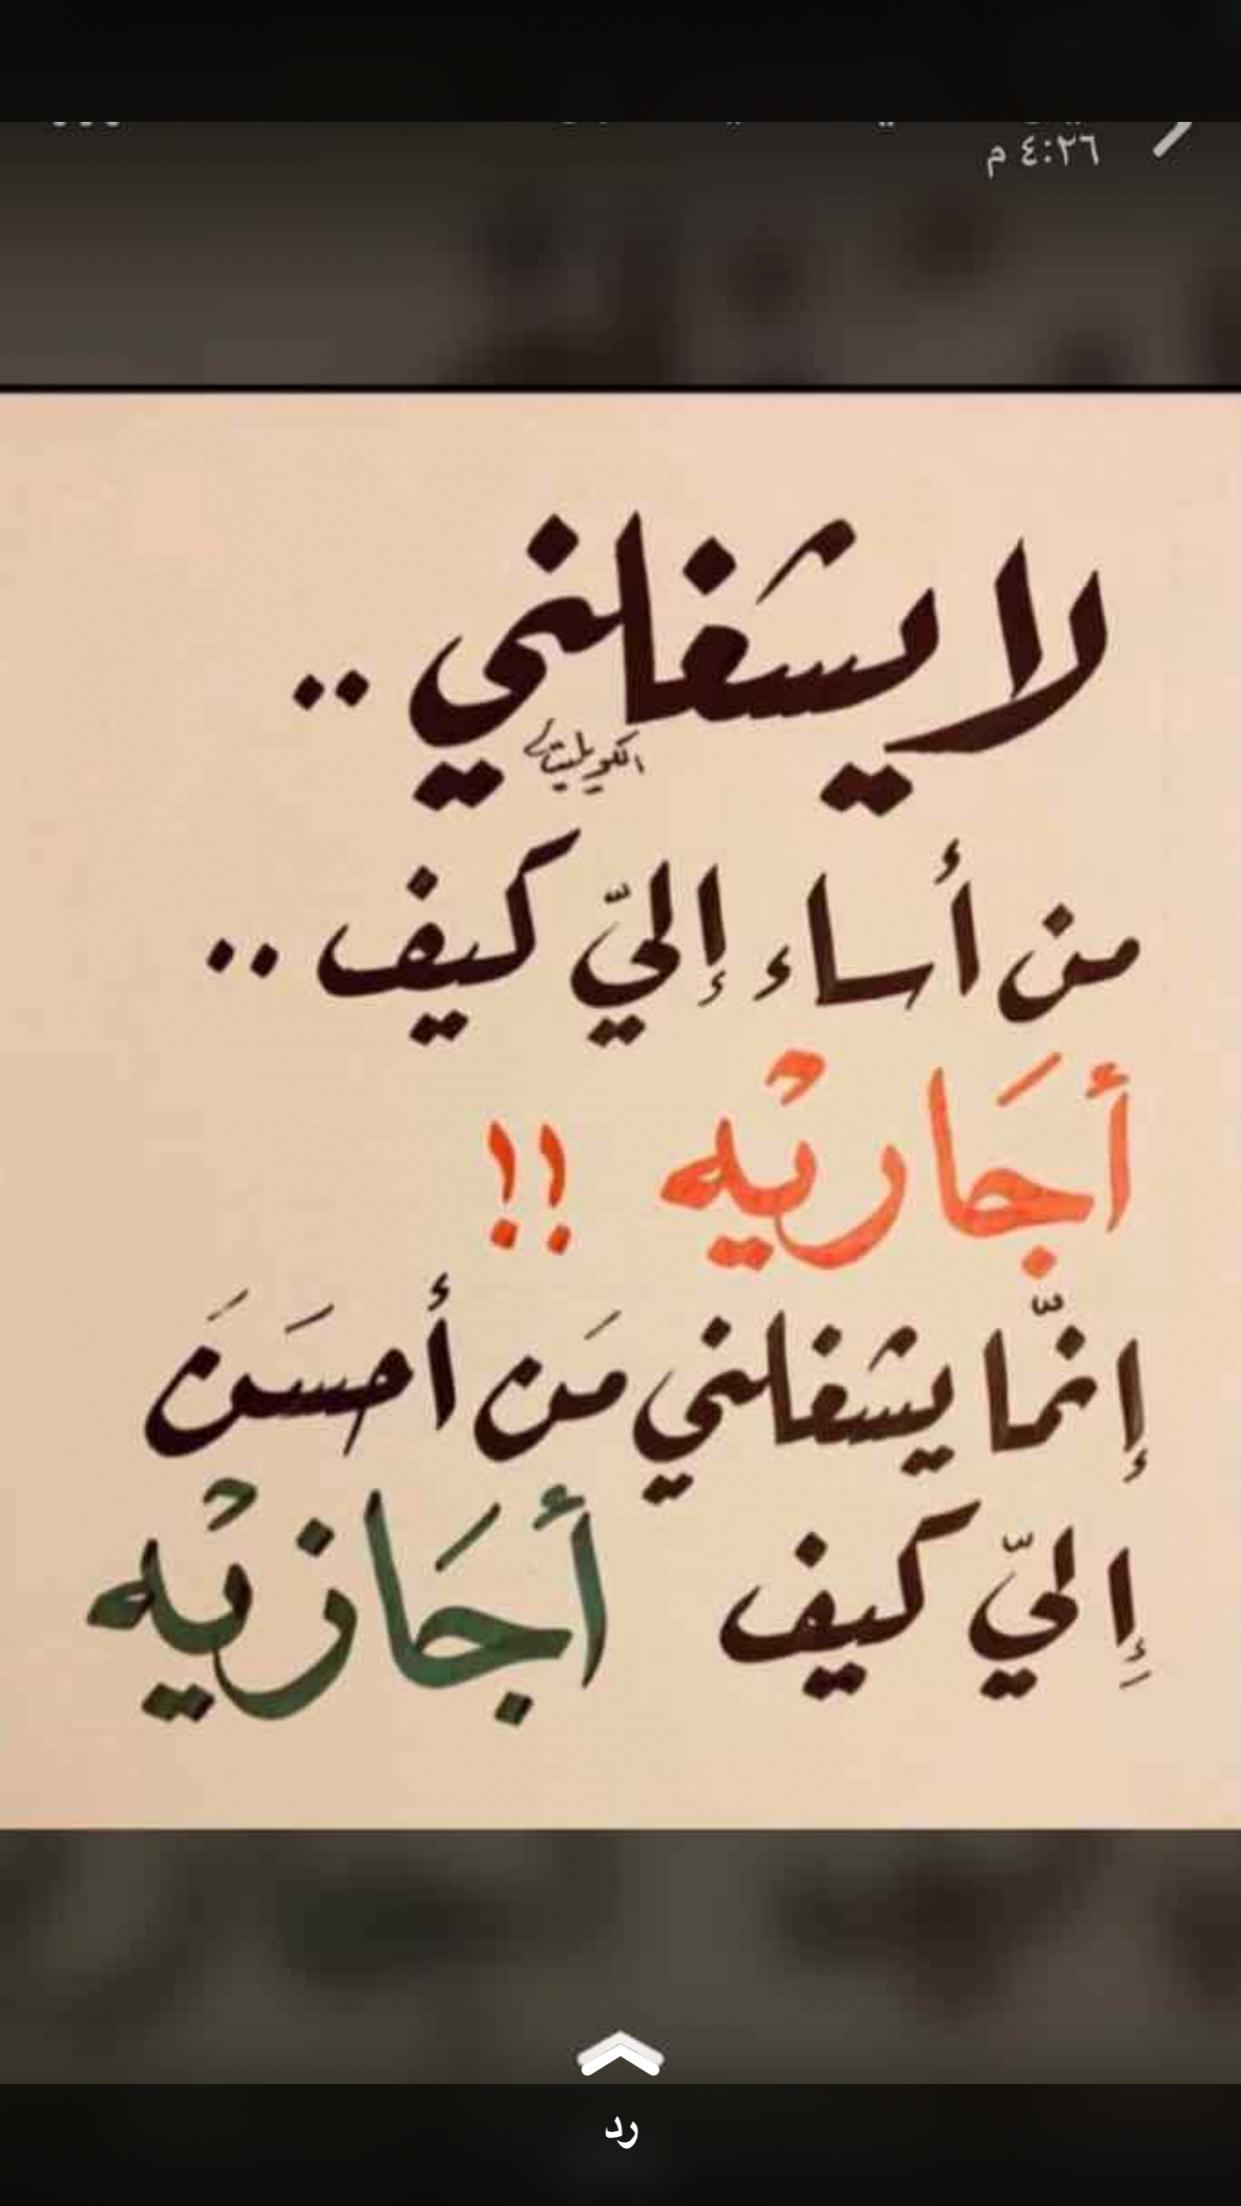 ٤:٢٦ م
لا يشغلني ..
من أساء إليّ كيف ..
أجَاريْه !!
إنمّا يشغلني مَن أحسَنَ
إِليّ كيف أجَازيْه
رد